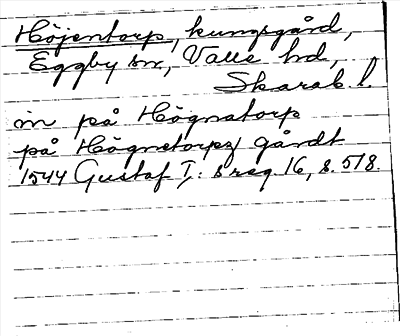 Höjentorp, kungsgård,
Eggby sn, Valle hd,
Skarab. l.
in på Högnatorp
på Högnetorpz gårdt
1544 Gustaf I:s reg 16, s. 518.